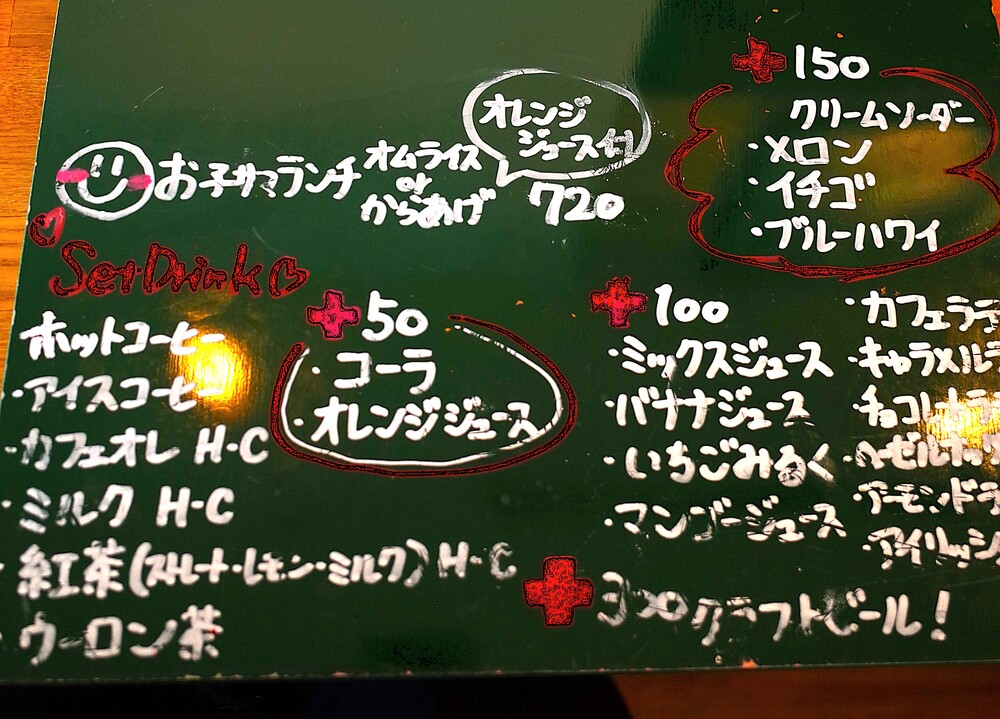 お子サマランチ オムライス or からあげ 720
オレンジ
ジュース付
Set Drink
ホットコーヒー
・アイスコーヒー
・カフェオレ H・C
・ミルク H・C
・紅茶(ストレート・レモン・ミルク) H・C
・ウーロン茶
+50
・コーラ
・オレンジジュース
+150
クリームソーダー
・メロン
・イチゴ
・ブルーハワイ
+100
・ミックスジュース
・バナナジュース
・いちごみるく
・マンゴージュース
・カフェラテ
・キャラメルラ
・チョコレートラテ
・ヘーゼルナッツ
・アーモンドラ
・アイリッシ
+300 クラフトビール!